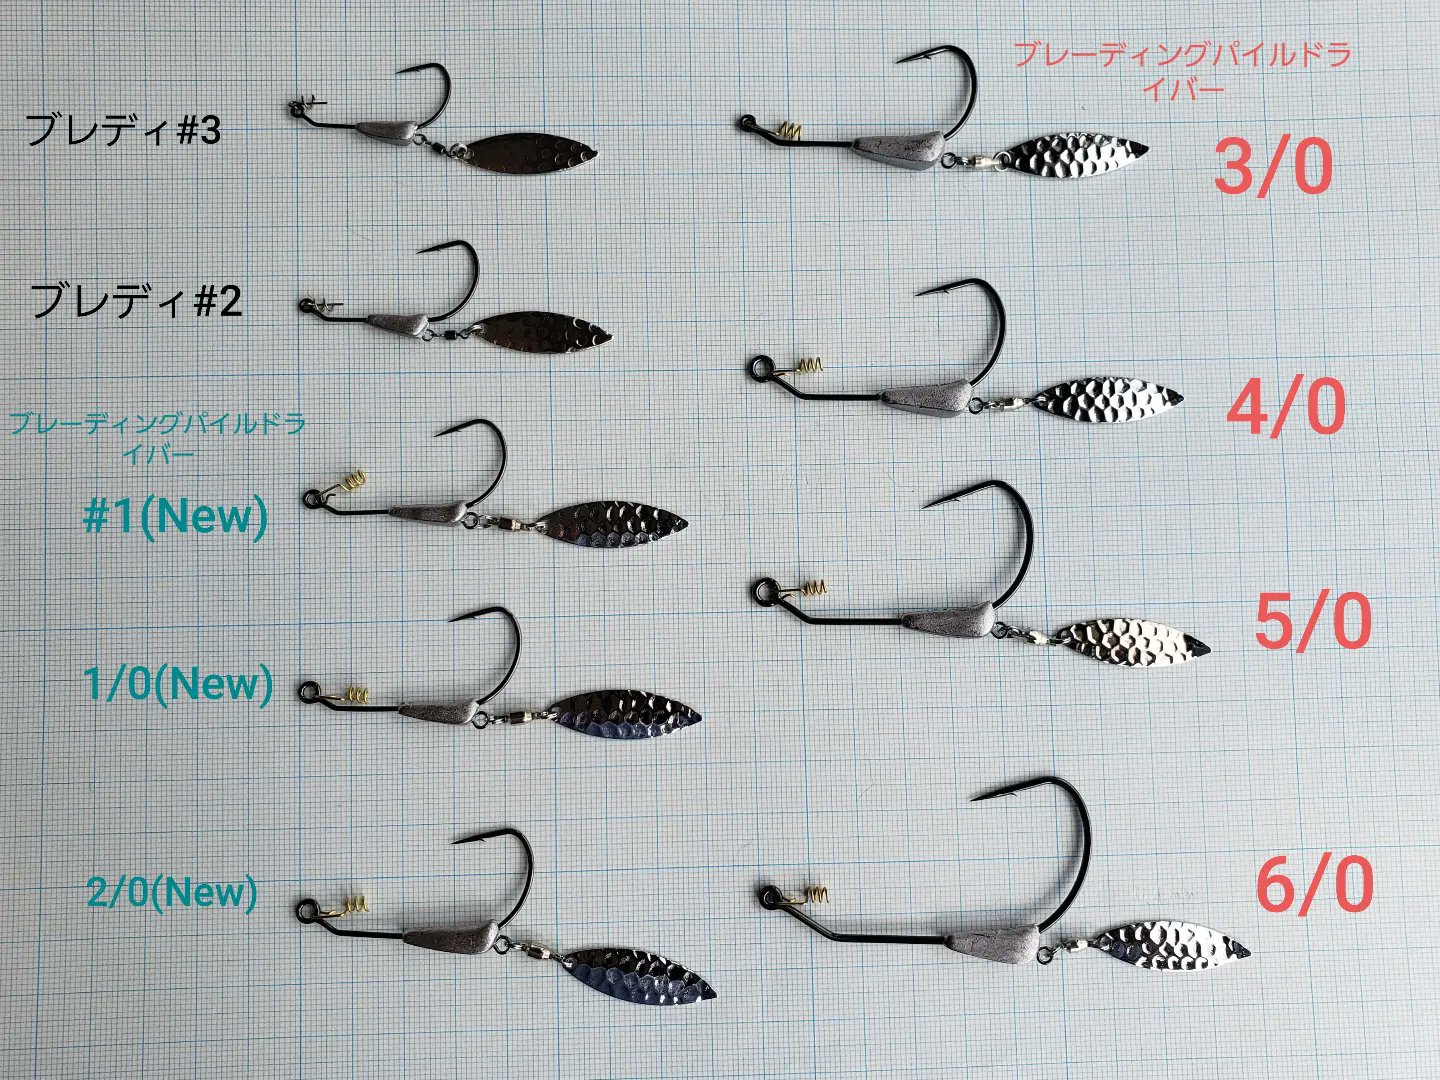 ブレディ#3
ブレディ#2
ブレーディングパイルドラ
イバー
#1(New)
1/0(New)
2/0(New)
ブレーディングパイルドラ
イバー
3/0
4/0
5/0
6/0